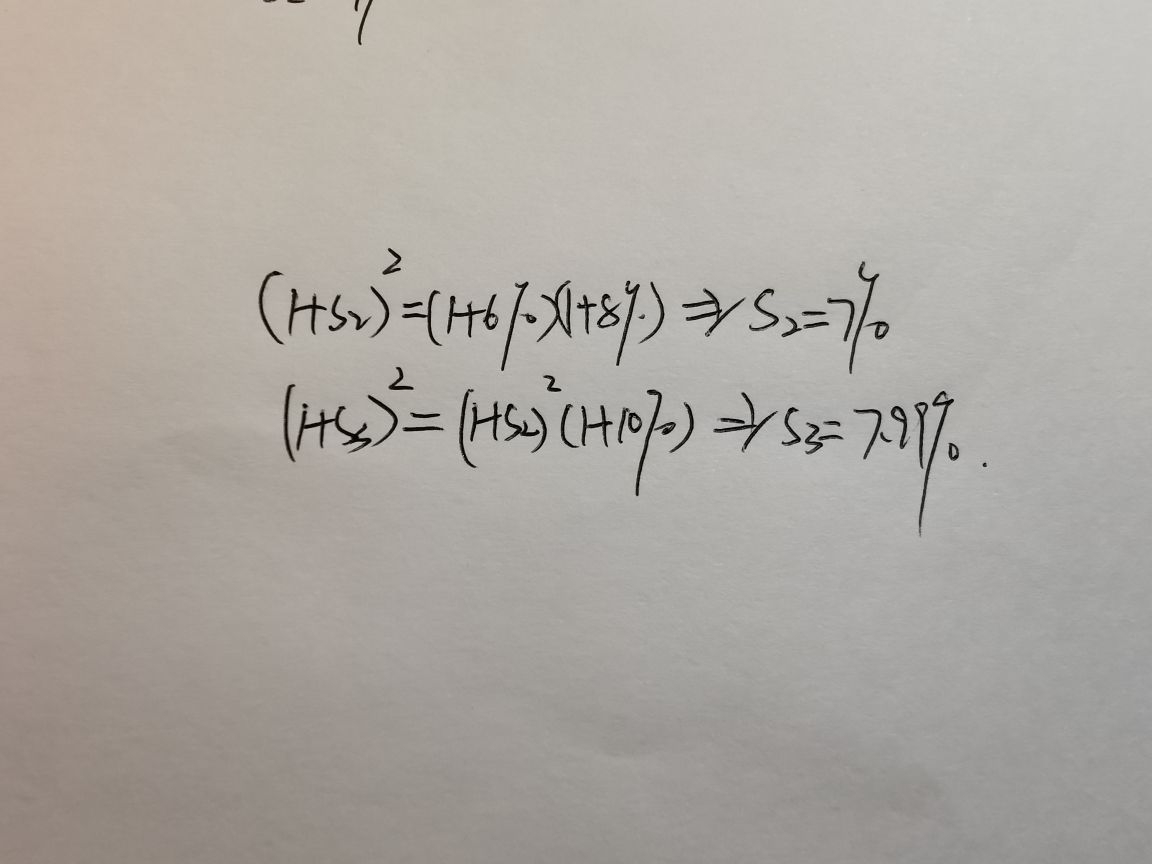 (1+S₂)²=(1+6%)(1+8%) ⇒ S₂=7%
(1+S₃)²=(1+S₂)²(1+10%) ⇒ S₃=7.99%.